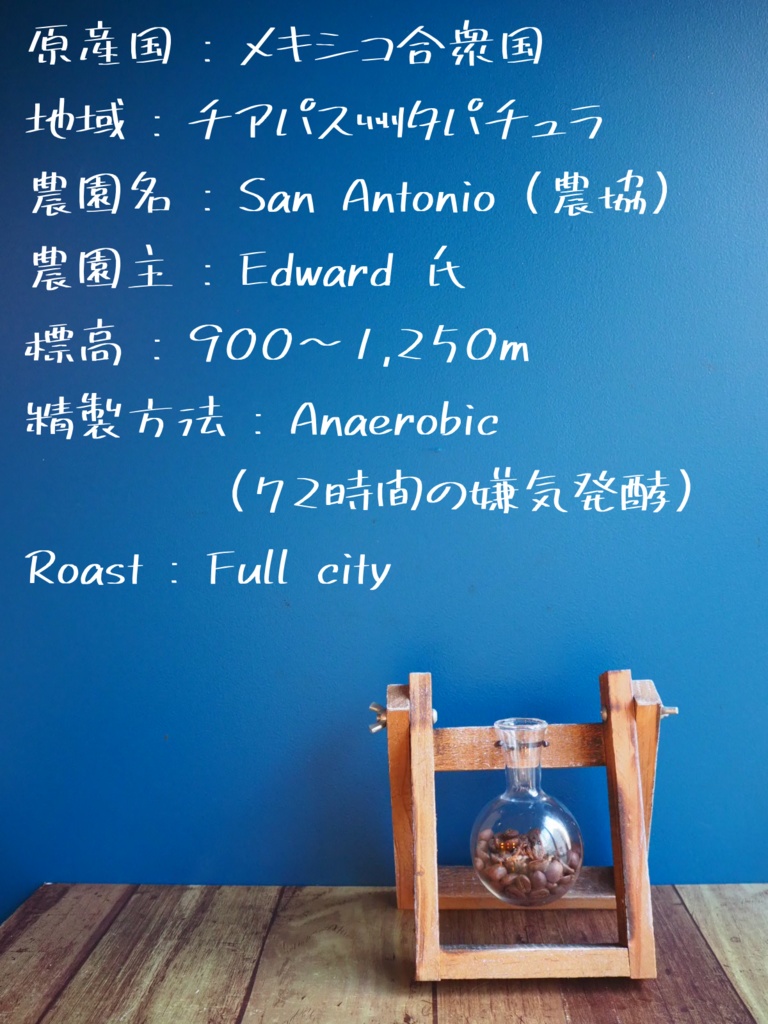 原産国：メキシコ合衆国
地域：チアパス州タパチュラ
農園名：San Antonio（農協）
農園主：Edward 氏
標高：900～1,250m
精製方法：Anaerobic
（72時間の嫌気発酵）
Roast：Full city